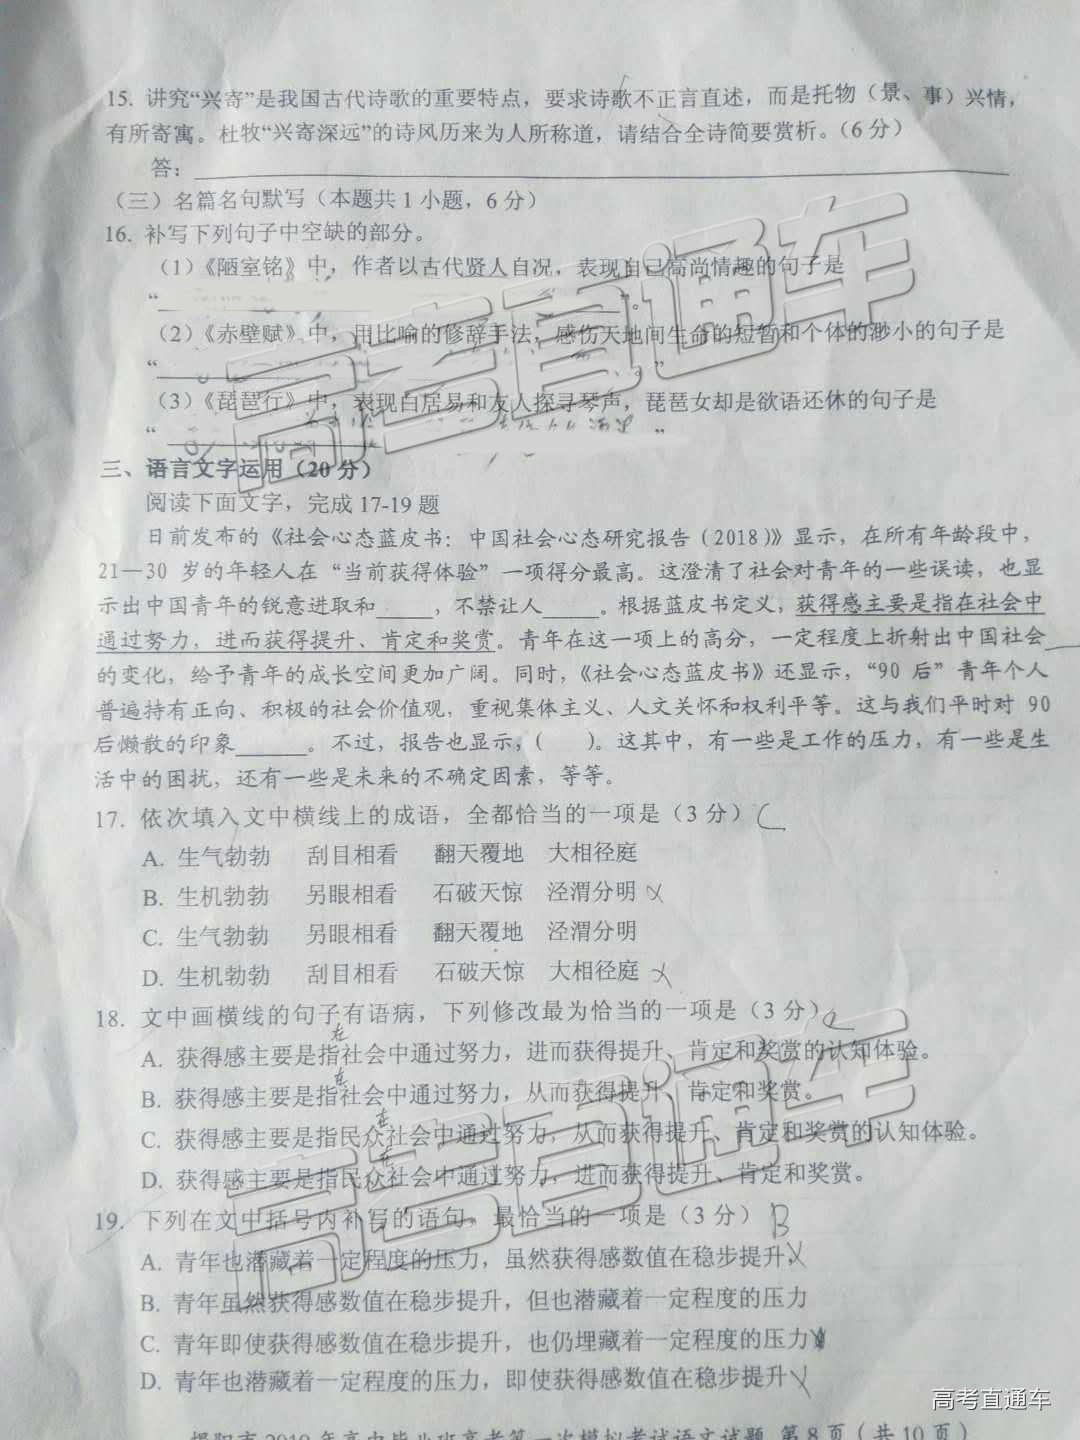 15. 讲究“兴寄”是我国古代诗歌的重要特点，要求诗歌不正言直述，而是托物（景、事）兴情，
有所寄寓。杜牧“兴寄深远”的诗风历来为人所称道，请结合全诗简要赏析。（6 分）
答：
（三）名篇名句默写（本题共 1 小题，6 分）
16. 补写下列句子中空缺的部分。
（1）《陋室铭》中，作者以古代贤人自况，表现自己高尚情趣的句子是
“ ”。
（2）《赤壁赋》中，用比喻的修辞手法，感伤天地间生命的短暂和个体的渺小的句子是
“ 。”
（3）《琵琶行》中，表现白居易和友人探寻琴声，琵琶女却是欲语还休的句子是
“ ”
三、语言文字运用（20 分）
阅读下面文字，完成 17-19 题
日前发布的《社会心态蓝皮书：中国社会心态研究报告（2018）》显示，在所有年龄段中，
21—30 岁的年轻人在“当前获得体验”一项得分最高。这澄清了社会对青年的一些误读，也显
示出中国青年的锐意进取和____，不禁让人____。根据蓝皮书定义，获得感主要是指在社会中
通过努力，进而获得提升、肯定和奖赏。青年在这一项上的高分，一定程度上折射出中国社会__
的变化，给予青年的成长空间更加广阔。同时，《社会心态蓝皮书》还显示，“90 后”青年个人
普遍持有正向、积极的社会价值观，重视集体主义、人文关怀和权利平等。这与我们平时对 90
后懒散的印象_____。不过，报告也显示，（ ）。这其中，有一些是工作的压力，有一些是生
活中的困扰，还有一些是未来的不确定因素，等等。
17. 依次填入文中横线上的成语，全都恰当的一项是（3 分）C
A. 生气勃勃 刮目相看 翻天覆地 大相径庭
B. 生机勃勃 另眼相看 石破天惊 泾渭分明
C. 生气勃勃 另眼相看 翻天覆地 泾渭分明
D. 生机勃勃 刮目相看 石破天惊 大相径庭
18. 文中画横线的句子有语病，下列修改最为恰当的一项是（3 分）
在
A. 获得感主要是指社会中通过努力，进而获得提升、肯定和奖赏的认知体验。
在
B. 获得感主要是指社会中通过努力，从而获得提升、肯定和奖赏。
在
C. 获得感主要是指民众社会中通过努力，从而获得提升、肯定和奖赏的认知体验。
在
D. 获得感主要是指民众社会中通过努力，进而获得提升、肯定和奖赏。
19. 下列在文中括号内补写的语句，最恰当的一项是（3 分）B
A. 青年也潜藏着一定程度的压力，虽然获得感数值在稳步提升
B. 青年虽然获得感数值在稳步提升，但也潜藏着一定程度的压力
C. 青年即使获得感数值在稳步提升，也仍埋藏着一定程度的压力
D. 青年也潜藏着一定程度的压力，即使获得感数值在稳步提升
揭阳市 2019 年高中毕业班高考第一次模拟考试语文试题 第 8 页（共 10 页）
高考直通车
高考直通车
高考直通车